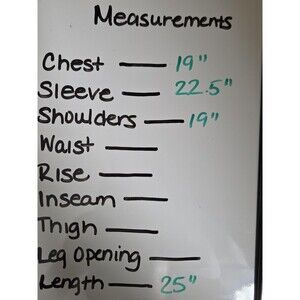 Measurements
Chest — 19"
Sleeve — 22.5"
Shoulders — 19"
Waist —
Rise —
Inseam —
Thigh —
Leg Opening —
Length — 25"